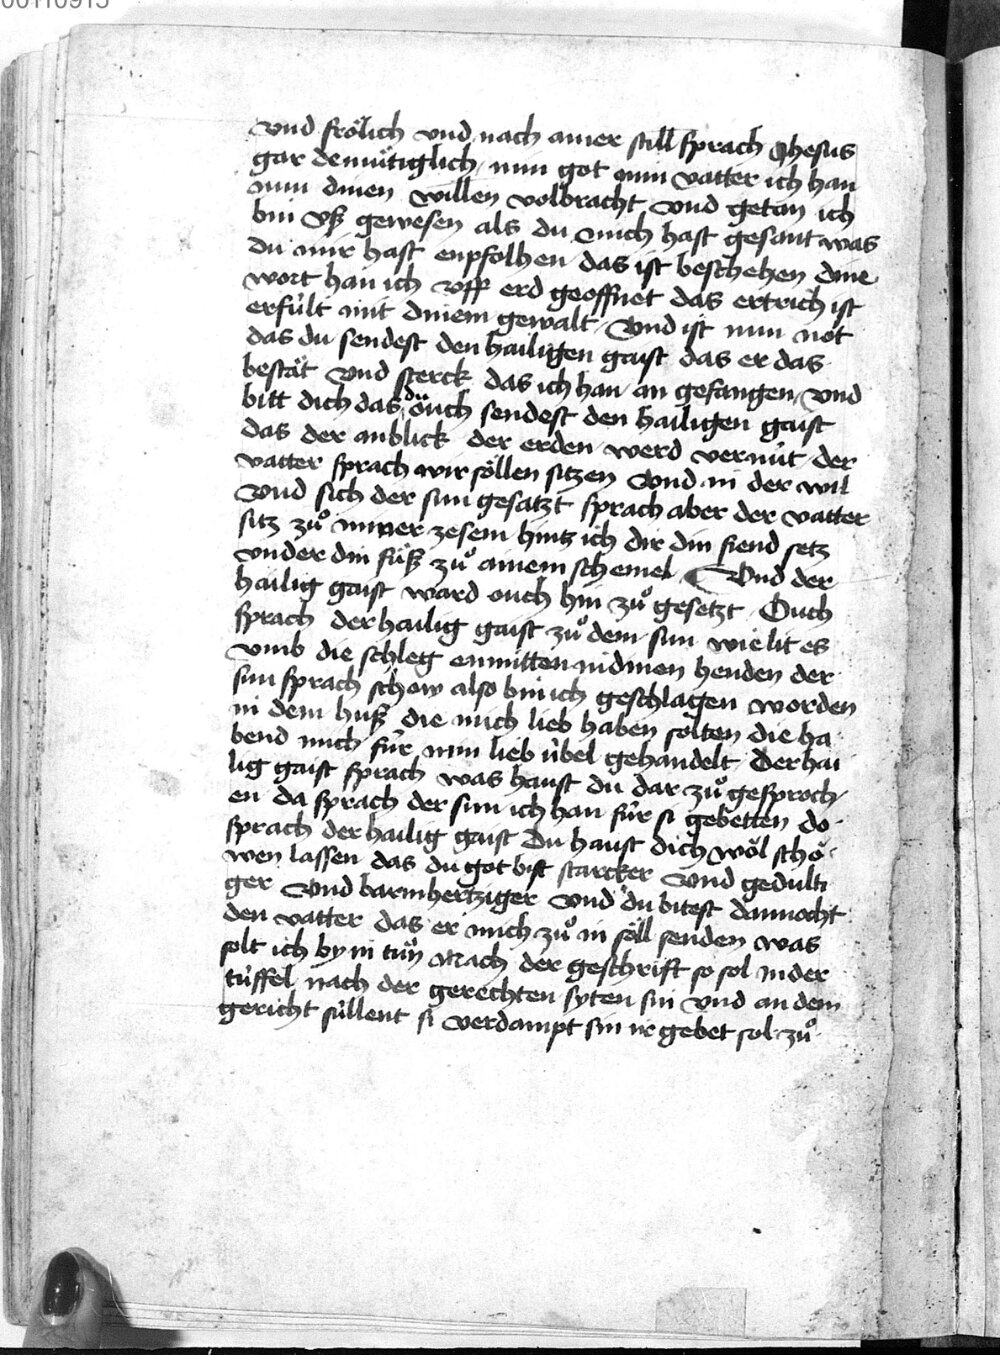 00110915
vnd frölich vnd nach ainer still sprach Jhesus
gar demütiglich min got min vatter ich han
nun dinen willen volbracht vnd getan ich
bin vß gewesen als du mich hast gesant was
du mir hast enpfolhen das ist beschehen dine
wort han ich vff erd geoffnet das ertrich ist
erfült mit dinem gewalt Vnd ist nun not
das du sendest den hailigen gaist das er das
bestät vnd sterck das ich han an gefangen vnd
bitt dich das du öuch sendest den hailigen gaist
das der anblick der erden werd vernüt der
vatter sprach wir söllen sitzen Vnd in der wil
vnd sich der sun gesatzt sprach aber der vatter
sitz zuͦ miner zesem hintz ich dir din fiend setz
vnder din füß zuͦ ainem schemel Vnd der
hailig gaist ward ouch hin zuͦ gesetzt Ouch
sprach der hailig gaist zuͦ dem sun wie lit es
vmb die schleg enmitten in dinen henden der
sun sprach schow also bin ich geschlagen worden
in dem huß die mich lieb haben solten die ha
bend mich für min lieb übel gehandelt Der hai
lig gaist sprach was haust du dar zuͦ gesproch
en da sprach der sun ich han für si gebetten do
sprach der hailig gaist Du haust dich wol schö
wen lassen das du got bist starcker vnd gedulti
ger vnd barmhertziger vnd du bitest dannocht
den vatter das er mich zuͦ in söll senden was
solt ich by in tuͦn Nach der geschrift so sol in der
tüffel nach der gerechten syten sin vnd an dem
gericht süllent si verdampt sin ir gebet sol zuͦ